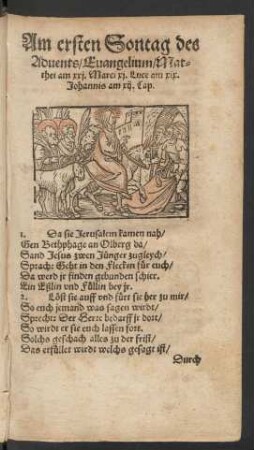 Am ersten Sontag des
Advents/Euangelium/Mat-
thei am xxj. Marci xj. Luce am xix.
Johannis am xij. Cap.
1. Da sie Jerusalem kamen nah/
Gen Bethphage an Olberg da/
Sand Jesus zwen Jünger zugleych/
Sprach: Geht in den Flecken für euch/
Da werd jr finden gebunden schier.
Ein Eslin und Füllin bey jr.
2. Löst sie auff und fürt sie her zu mir/
So euch jemand was sagen wirdt/
Sprecht: Der Herre bedarff jr dort/
So wirdt er sie euch lassen fort.
Solchs geschach alles zu der frist/
Das erfüllet wirdt welchs gesagt ist/
Durch